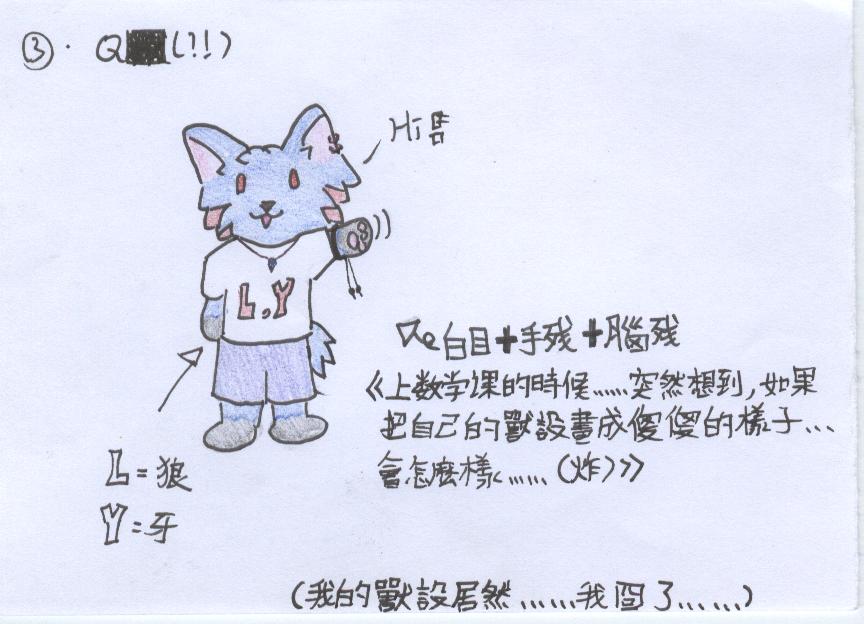 ③. Q██(?!)
Hi
L,Y
白目+手残+腦残
《上数学课的時候……突然想到,如果
把自己的獸設畫成傻傻的樣子…
會怎麼樣……(炸)》
L=狼
Y=牙
(我的獸設居然……我囧了……)